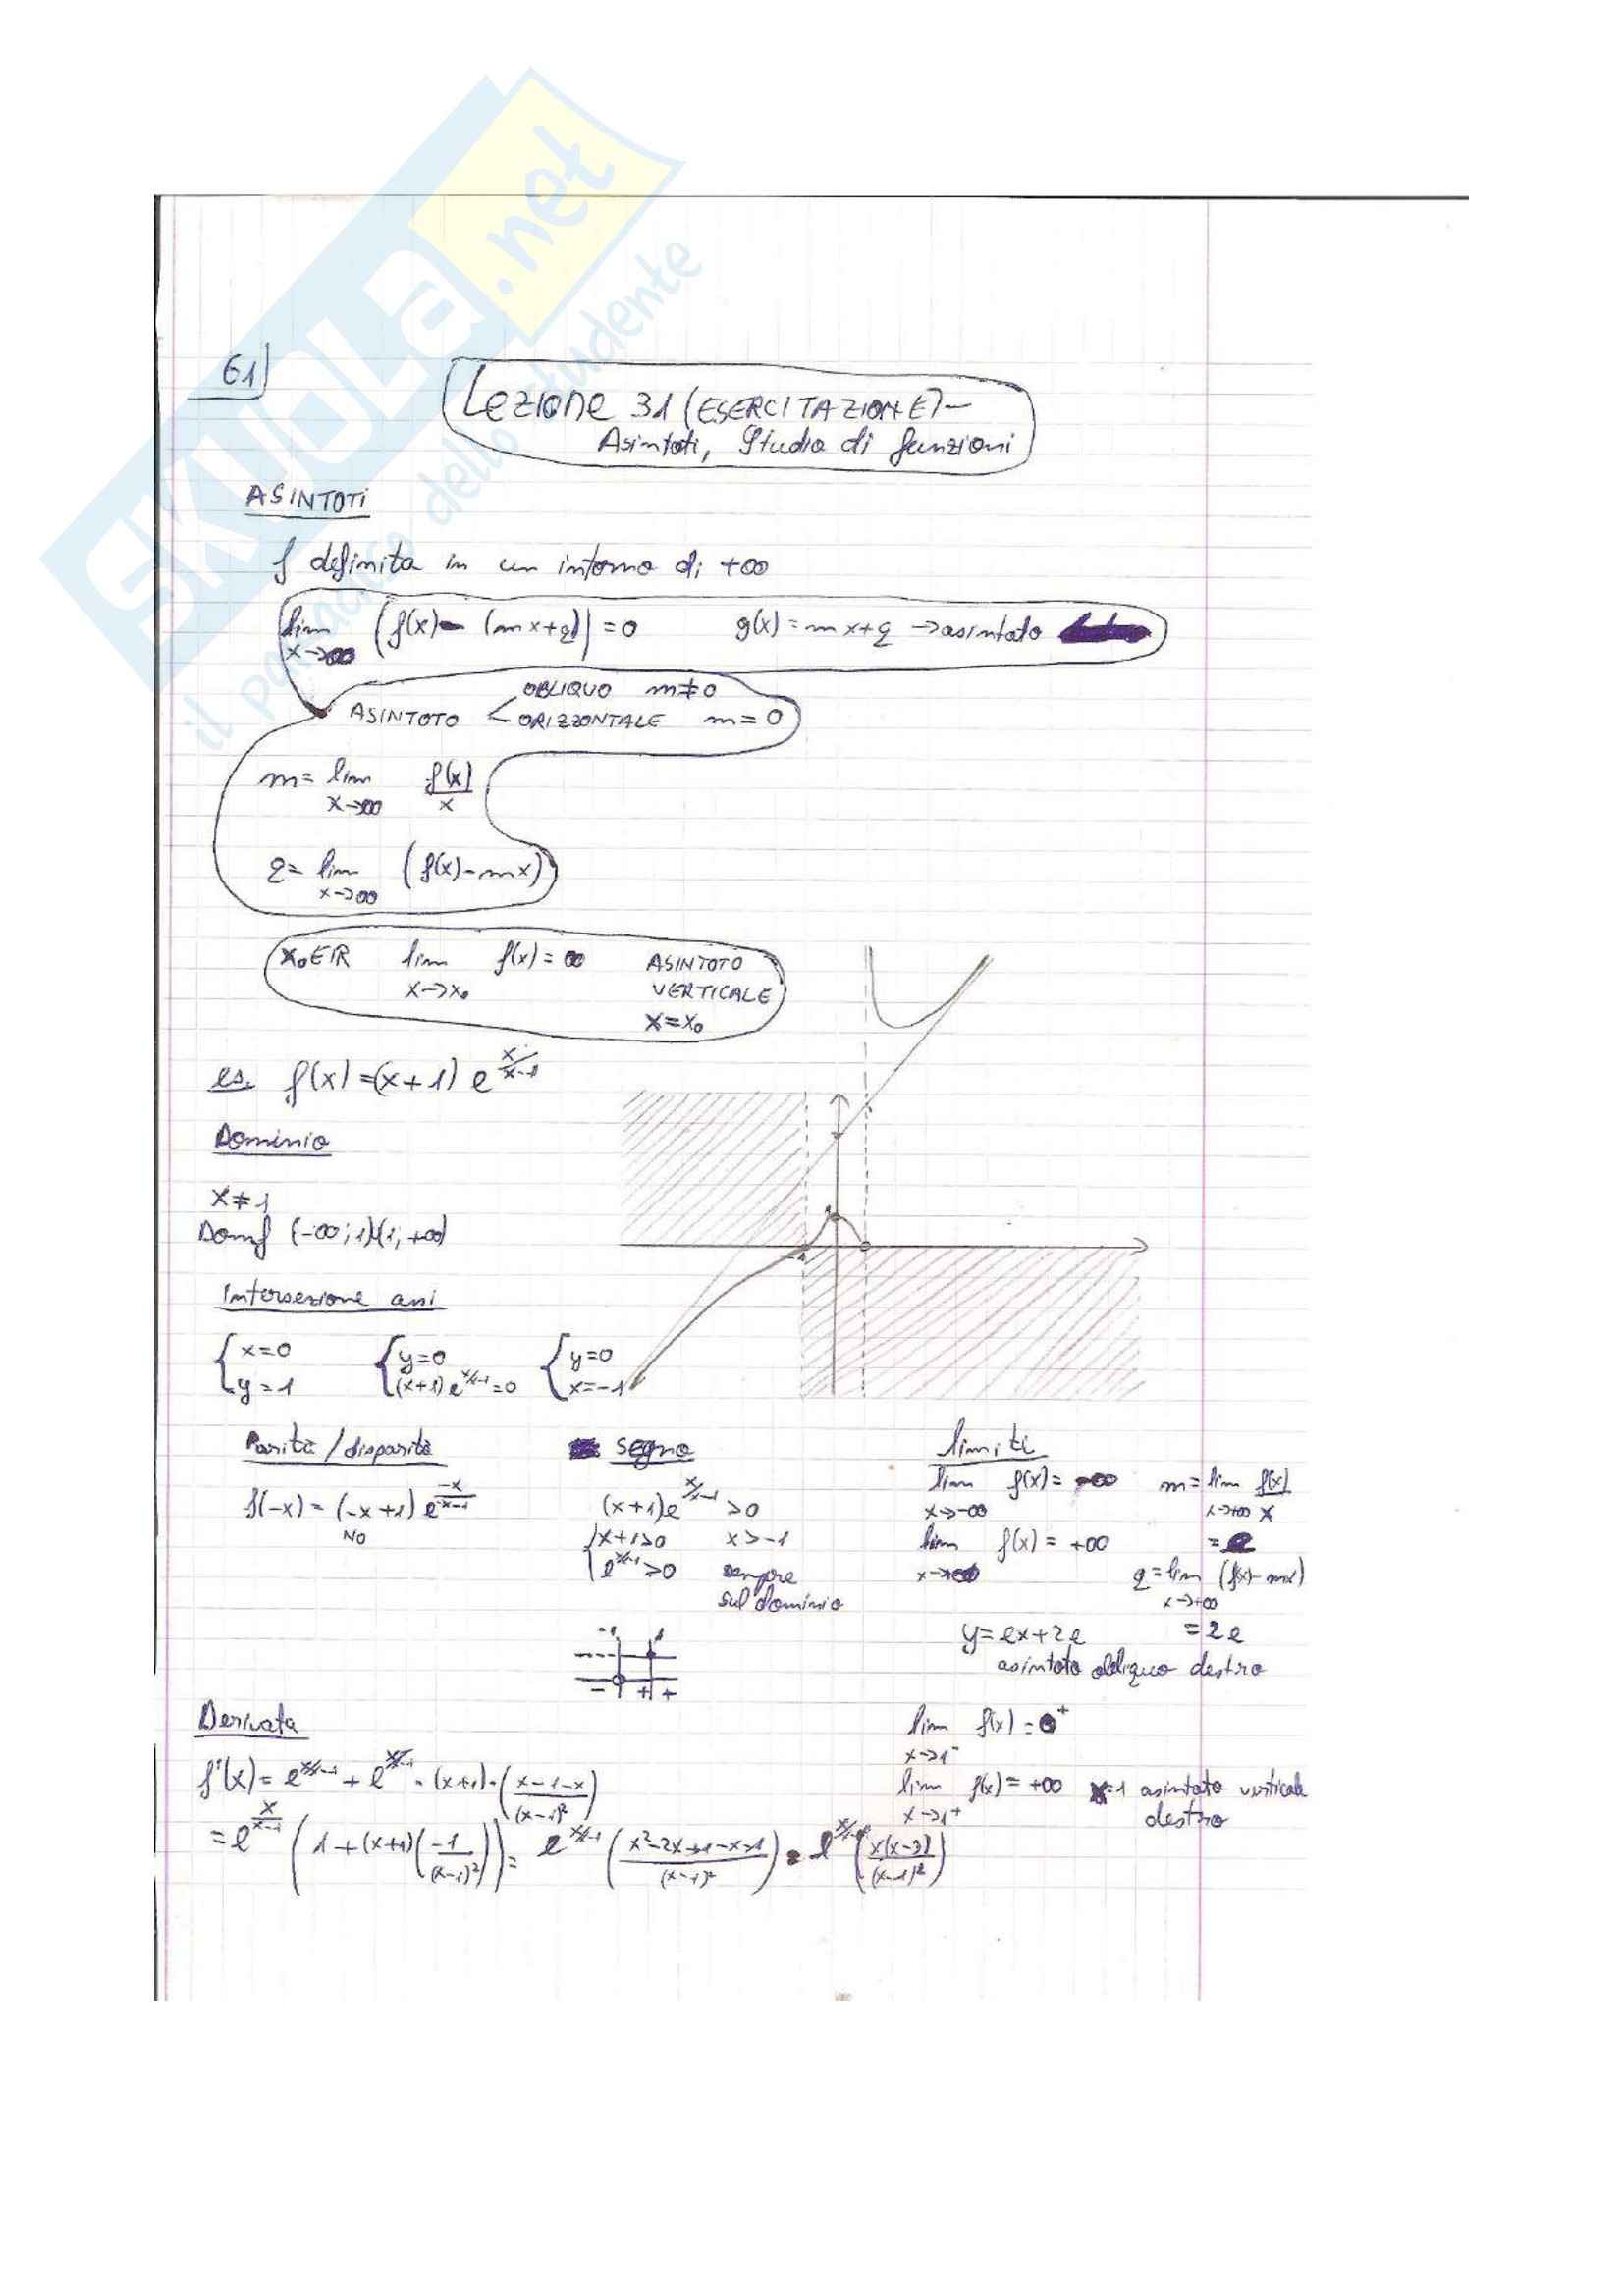 SKUOLA.net
il paradiso dello studente
61
Lezione 31 (ESERCITAZIONE) -
Asintoti, Studio di funzioni
ASINTOTI
f definita in un intorno di +∞
lim x→∞ (f(x) - (mx+q)) = 0 g(x) = mx+q → asintoto
ASINTOTO OBLIQUO m≠0
ORIZZONTALE m=0
m = lim x→∞ f(x)/x
q = lim x→∞ (f(x)-mx)
x₀∈ℝ lim x→x₀ f(x) = ∞ ASINTOTO
VERTICALE
x=x₀
es. f(x) = (x+1) e^(x/x-1)
Dominio
x≠1
Domf (-∞;1)(1;+∞)
-1
1
Intersezione assi
{x=0 {y=0 {y=0
{y=1 {(x+1)e^(x/x-1)=0 {x=-1
Parità/disparità
f(-x) = (-x+1) e^(-x/-x-1)
NO
segno
(x+1)e^(x/x-1) >0
{x+1>0 x>-1
{e^(x/x-1)>0 sempre
sul dominio
-1 1
- + +
limiti
lim x→-∞ f(x) = -∞ m = lim x→+∞ f(x)/x
lim x→+∞ f(x) = +∞ = e
q = lim x→+∞ (f(x)-mx)
y=ex+2e = 2e
asintoto obliquo destro
lim x→1⁻ f(x) = 0⁺
lim x→1⁺ f(x) = +∞ x=1 asintoto verticale
destro
Derivata
f'(x) = e^(x/x-1) + e^(x/x-1) · (x+1) · (x-1-x/(x-1)²)
= e^(x/x-1) (1+(x+1)(-1/(x-1)²)) = e^(x/x-1) (x²-2x+1-x-1/(x-1)²) = e^(x/x-1) (x(x-3)/(x-1)²)